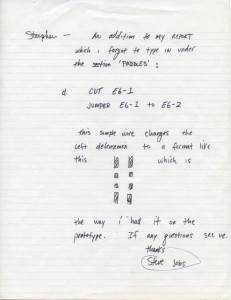 Stephen —
An addition to my REPORT
which i forgot to type in under
the section 'PADDLES' :
d. CUT E6-1
JUMPER E6-1 to E6-2
this simple wire changes the
to a format like
this which is
the way i had it on the
prototype. If any questions see me.
thanks
Steve Jobs